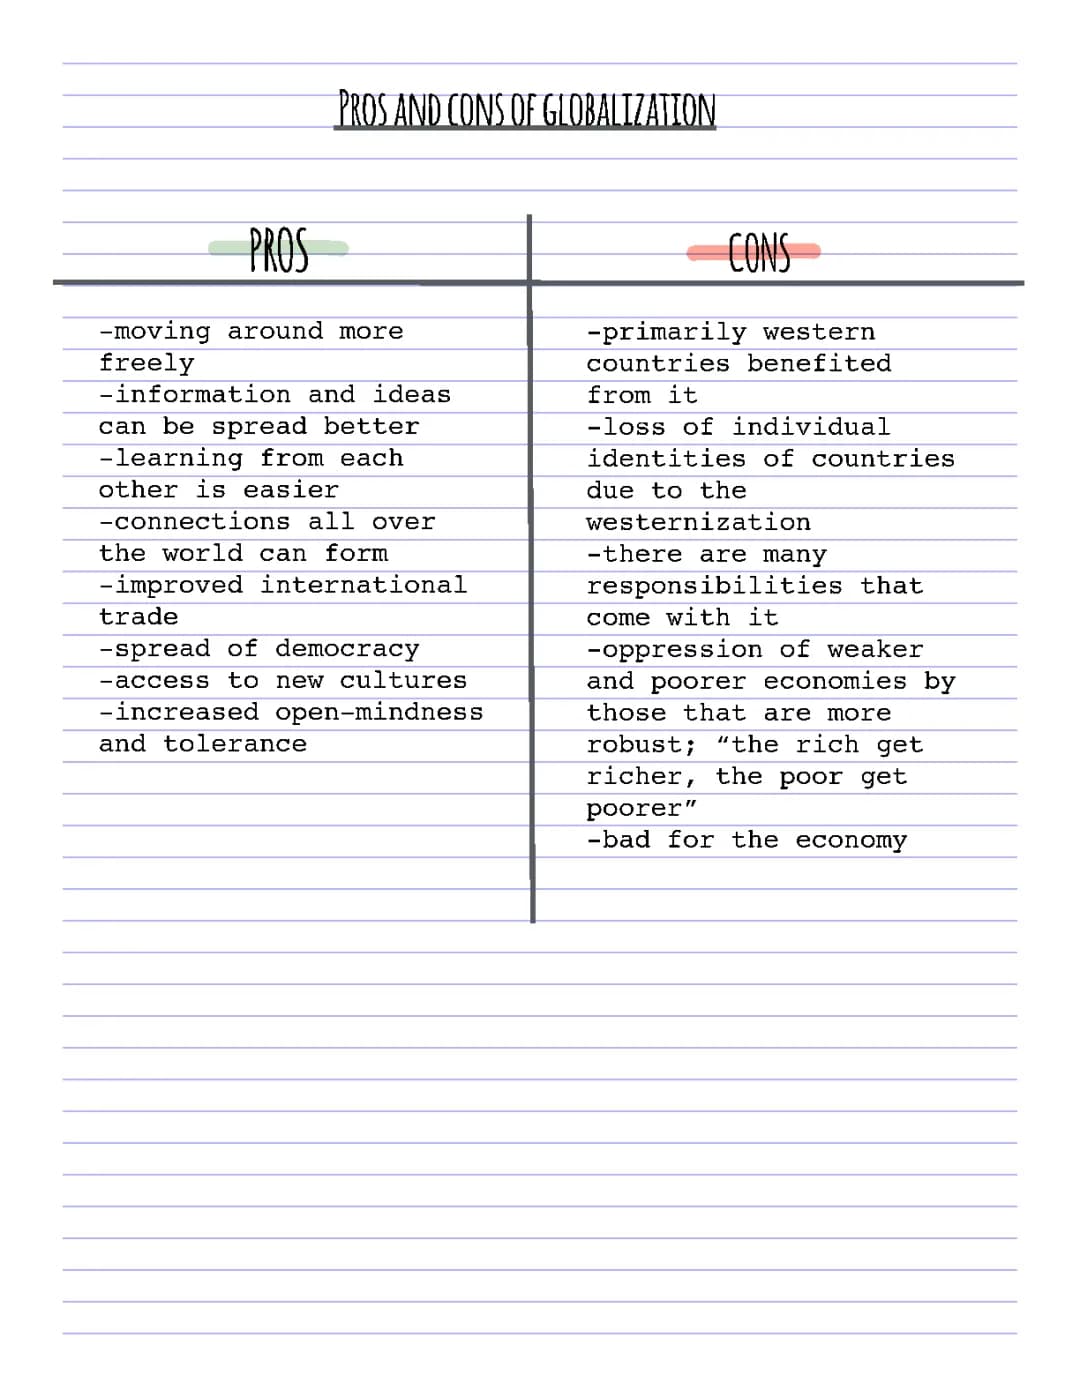 PROS AND CONS OF GLOBALIZATION
PROS
-moving around more
freely
-information and ideas
can be spread better
-learning from each
other is easier
-connections all over
the world can form
-improved international
trade
-spread of democracy
-access to new cultures
-increased open-mindness
and tolerance
CONS
-primarily western
countries benefited
from it
-loss of individual
identities of countries
due to the
westernization
-there are many
responsibilities that
come with it
-oppression of weaker
and poorer economies by
those that are more
robust; “the rich get
richer, the poor get
poorer”
-bad for the economy